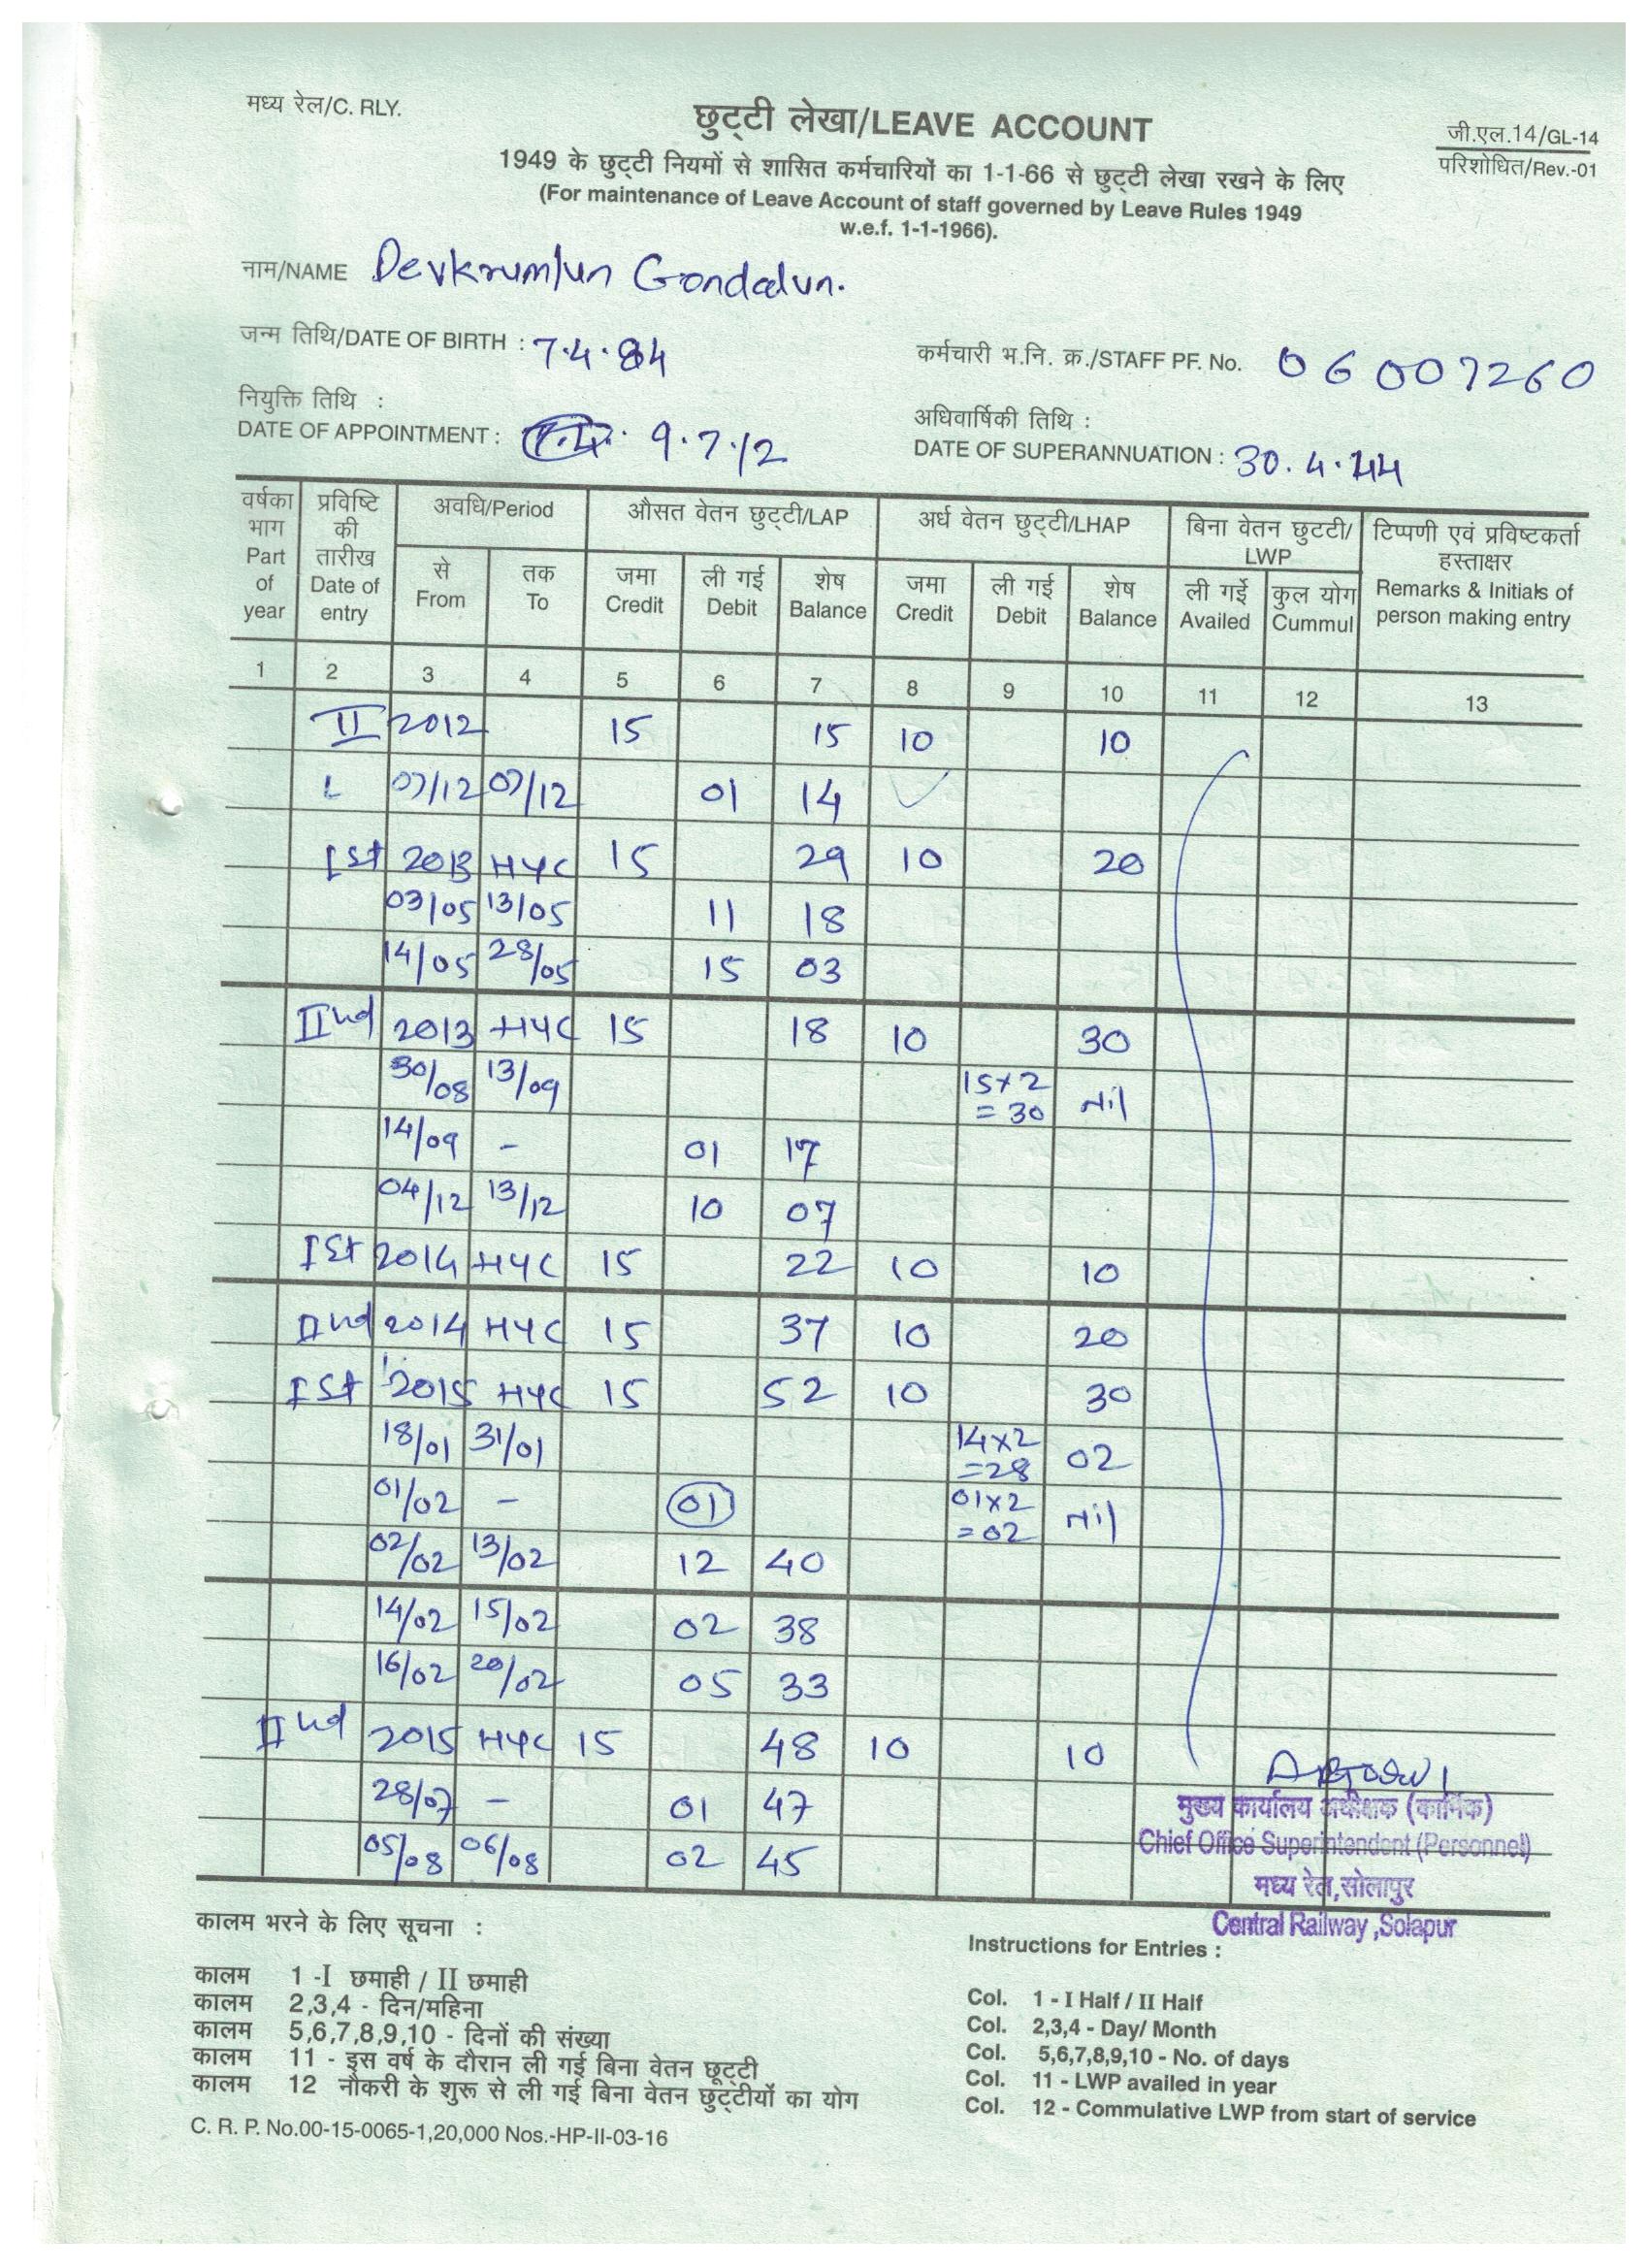 मध्य रेल/C. RLY.
छुट्टी लेखा/LEAVE ACCOUNT
जी.एल.14/GL-14
परिशोधित/Rev.-01
1949 के छुट्टी नियमों से शासित कर्मचारियों का 1-1-66 से छुट्टी लेखा रखने के लिए
(For maintenance of Leave Account of staff governed by Leave Rules 1949
w.e.f. 1-1-1966).
नाम/NAME
जन्म तिथि/DATE OF BIRTH : 7.4.84
कर्मचारी भ.नि. क्र./STAFF PF. No. 06007260
नियुक्ति तिथि :
DATE OF APPOINTMENT : 9.7.12
अधिवार्षिकी तिथि :
DATE OF SUPERANNUATION : 30.4.44
वर्षका भाग Part of year
प्रविष्टि की तारीख Date of entry
अवधि/Period
औसत वेतन छुट्टी/LAP
अर्ध वेतन छुट्टी/LHAP
बिना वेतन छुटटी/LWP
टिप्पणी एवं प्रविष्टकर्ता हस्ताक्षर Remarks & Initials of person making entry
से From
तक To
जमा Credit
ली गई Debit
शेष Balance
जमा Credit
ली गई Debit
शेष Balance
ली गई Availed
कुल योग Cummul
1 2 3 4 5 6 7 8 9 10 11 12 13
II 2012 15 15 10 10
07/12 07/12 01 14
Ist 2013 HYC 15 29 10 20
03/05 13/05 11 18
14/05 28/05 15 03
IInd 2013 HYC 15 18 10 30
30/08 13/09 15x2 = 30 Nil
14/09 - 01 17
04/12 13/12 10 07
Ist 2014 HYC 15 22 10 10
IInd 2014 HYC 15 37 10 20
Ist 2015 HYC 15 52 10 30
18/01 31/01 14x2 =28 02
01/02 - 01 01x2 =02 Nil
02/02 13/02 12 40
14/02 15/02 02 38
16/02 20/02 05 33
IInd 2015 HYC 15 48 10 10
28/07 - 01 47
05/08 06/08 02 45
मुख्य कार्यालय अधीक्षक (कार्मिक)
Chief Office Superintendent (Personnel)
मध्य रेल,सोलापुर
Central Railway ,Solapur
कालम भरने के लिए सूचना :
कालम 1 -I छमाही / II छमाही
कालम 2,3,4 - दिन/महिना
कालम 5,6,7,8,9,10 - दिनों की संख्या
कालम 11 - इस वर्ष के दौरान ली गई बिना वेतन छूट्टी
कालम 12 नौकरी के शुरू से ली गई बिना वेतन छुट्टीयों का योग
Instructions for Entries :
Col. 1 - I Half / II Half
Col. 2,3,4 - Day/ Month
Col. 5,6,7,8,9,10 - No. of days
Col. 11 - LWP availed in year
Col. 12 - Commulative LWP from start of service
C. R. P. No.00-15-0065-1,20,000 Nos.-HP-II-03-16